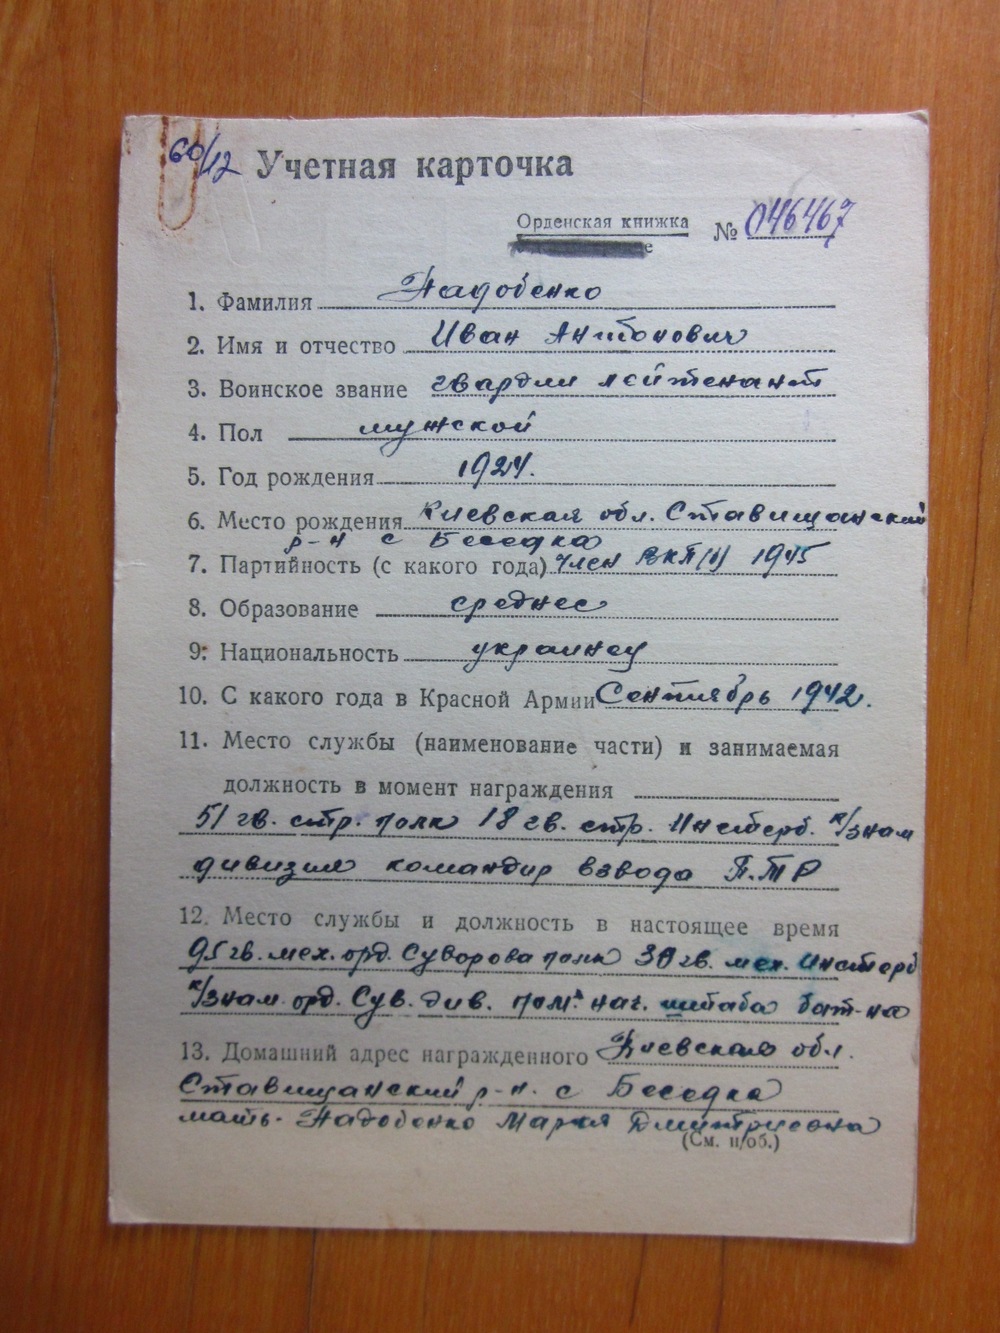 60/12 Учетная карточка
Орденская книжка № 046467
1. Фамилия Надобенко
2. Имя и отчество Иван Антонович
3. Воинское звание гвардии лейтенант
4. Пол мужской
5. Год рождения 1924.
6. Место рождения Киевская обл. Ставищанский
р-н с Беседка
7. Партийность (с какого года) Член ВКП(б) 1945
8. Образование среднее
9. Национальность украинец
10. С какого года в Красной Армии Сентябрь 1942.
11. Место службы (наименование части) и занимаемая
должность в момент награждения
51 гв. стр. полк 18 гв. стр. Инстерб. к/знам
дивизии командир взвода П.Т.Р
12. Место службы и должность в настоящее время
95 гв. мех. орд. Суворова полк 30 гв. мех. Инстерб
к/знам. орд. Сув. див. пом. нач. штаба бат-на
13. Домашний адрес награжденного Киевская обл.
Ставищанский р-н. с Беседка
мать- Надобенко Мария Дмитриевна
(См. н/об.)